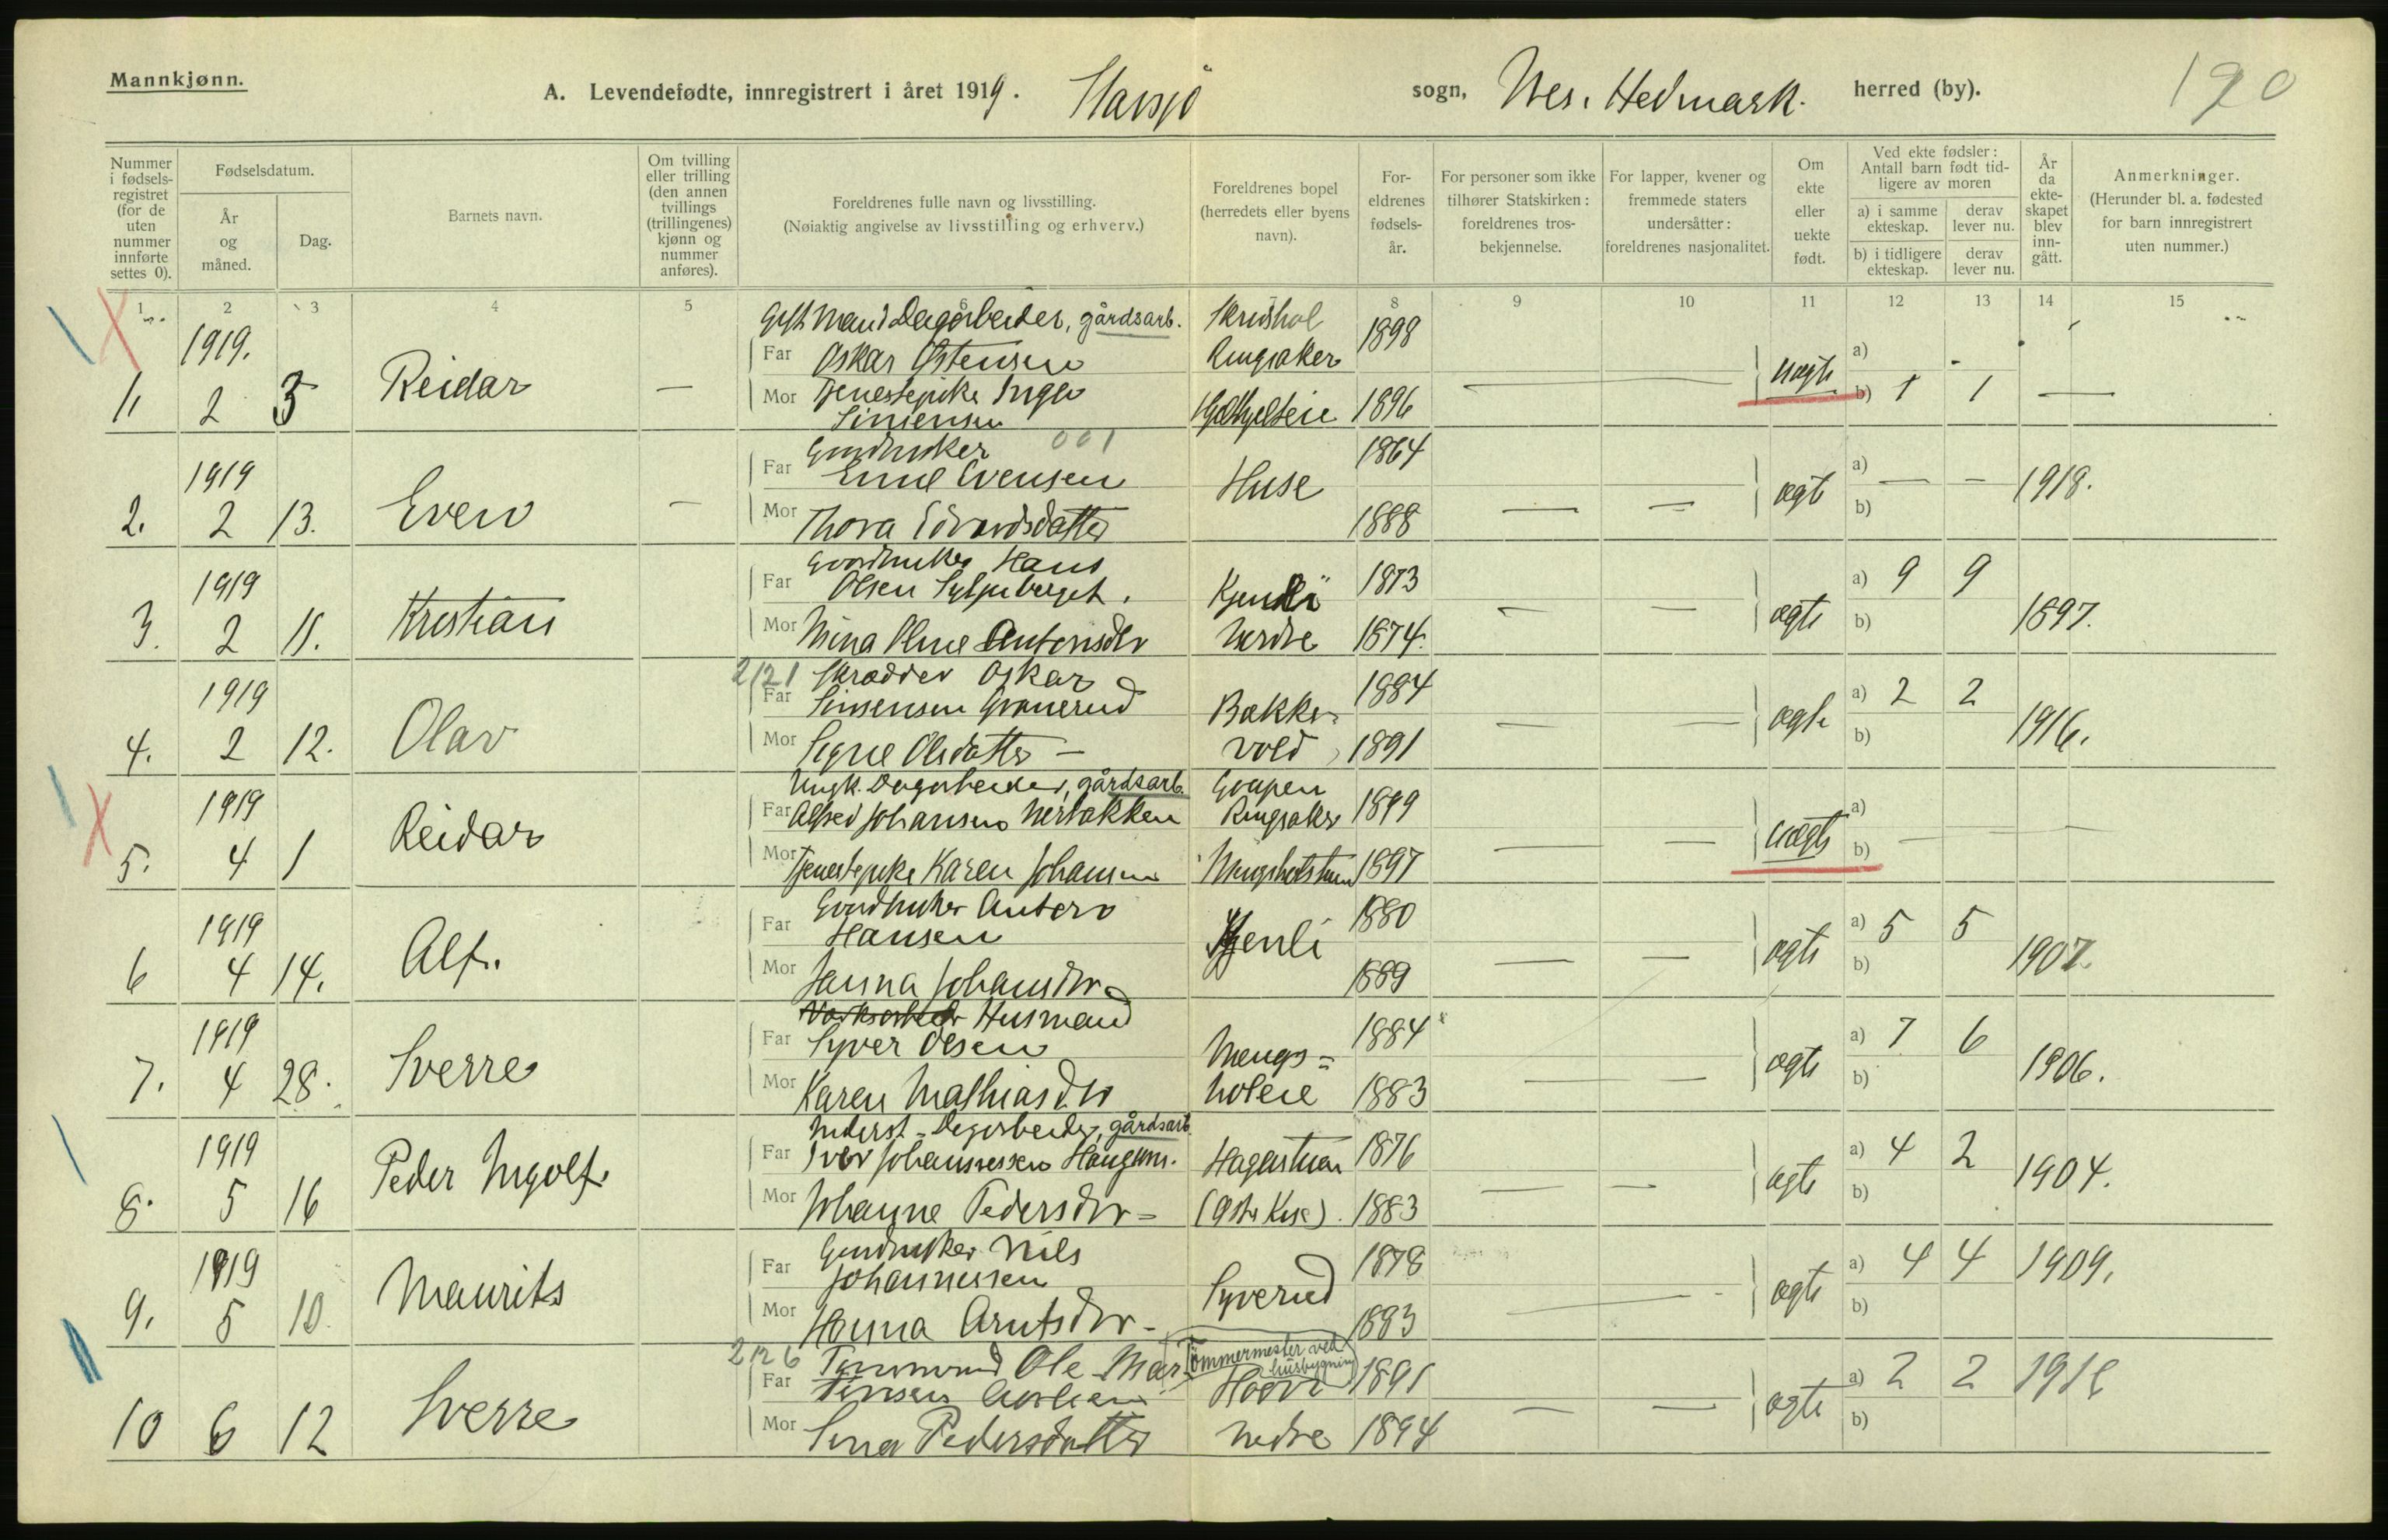 Mannkjønn.
A. Levendefødte, innregistrert i året 1919. Stavsjø sogn, Nes. Hedmark. herred (by).
190
Nummer i fødsels-registret (for de uten nummer innførte settes 0).
Fødselsdatum.
År og måned.
Dag.
Barnets navn.
Om tvilling eller trilling (den annen tvillings (trillingenes) kjønn og nummer anføres).
Foreldrenes fulle navn og livsstilling.
(Nøiaktig angivelse av livsstilling og erhverv.)
Foreldrenes bopel (herredets eller byens navn).
For-eldrenes fødsels-år.
For personer som ikke tilhører Statskirken: foreldrenes tros-bekjennelse.
For lapper, kvener og fremmede staters undersåtter: foreldrenes nasjonalitet.
Om ekte eller uekte født.
Ved ekte fødsler: Antall barn født tid-ligere av moren
a) i samme ekteskap.
derav lever nu.
b) i tidligere ekteskap.
derav lever nu.
År da ekte-skapet blev inn-gått.
Anmerkninger.
(Herunder bl. a. fødested for barn innregistrert uten nummer.)
1 2 3 4 5 6 8 9 10 11 12 13 14 15
Gift Mand Dagarbeider, gårdsarb.
1919. Far Oskar Østensen Ringsaker 1898 a) -
1. 2 3 Reidar — Mor Tjenestepike Inga Simensen 1896 — — uægte b) 1 1 —
Gaardbruker 001
1919 Far Emil Evensen Huse 1864 a) — — 1918.
2. 2 13. Even — Mor Thora Edvardsdatter 1888 — — ægte b)
Gaardbruker Hans
1919 Far Olsen Syljuberget. Kjenli 1873 a) 9 9
3. 2 11. Kristian Mor Nina Oline Antonsdtr nedre 1874. — — ægte b) 1897.
2121 Skrædder Oskar
1919 Far Simensen Granerud Bakke- 1884 a) 2 2
4. 2 12. Olav Mor Signe Olsdatter — vold 1891 — — ægte b) 1916.
Ungk. Dagarbeider, gårdsarb.
1919 Far Alfred Johansen Nerbakken Ringsaker 1899 a)
5. 4 1 Reidar Mor Tjenestepike Karen Johansen 1897 — — uægte b) — — —
Gaardbruker Anton
1919 Far Hansen Kjenli 1880 a) 5 5
6 4 14. Alf. Mor Janna Johansdtr 1889 — — ægte b) 1907.
Husmand
1919 Far Syver Olsen Mengs= 1884 a) 7 6
7. 4 28. Sverre Mor Karen Mathiasdtr holeie 1883 — — ægte b) 1906.
Inderst - Dagarbeider, gårdsarb.
1919 Far Iver Johannessen Hagastuen 1876 a) 4 2
8. 5 16 Peder Ingolf. Mor Johanne Pedersdtr - 1883 — — ægte b) 1904.
Gaardbruker Nils
1919 Far Johannessen Syverud 1878 a) 4 4 1909.
9. 5 10. Maurits Mor Hanna Arntsdtr - 1883 — ægte b)
2126 Tømmermand Ole Mar- Tømmermester ved husbygning
Far tinsen 1891 a) 2 2
10 6 12 Sverre Mor Lina Pedersdatter nedre 1894 — — ægte b)